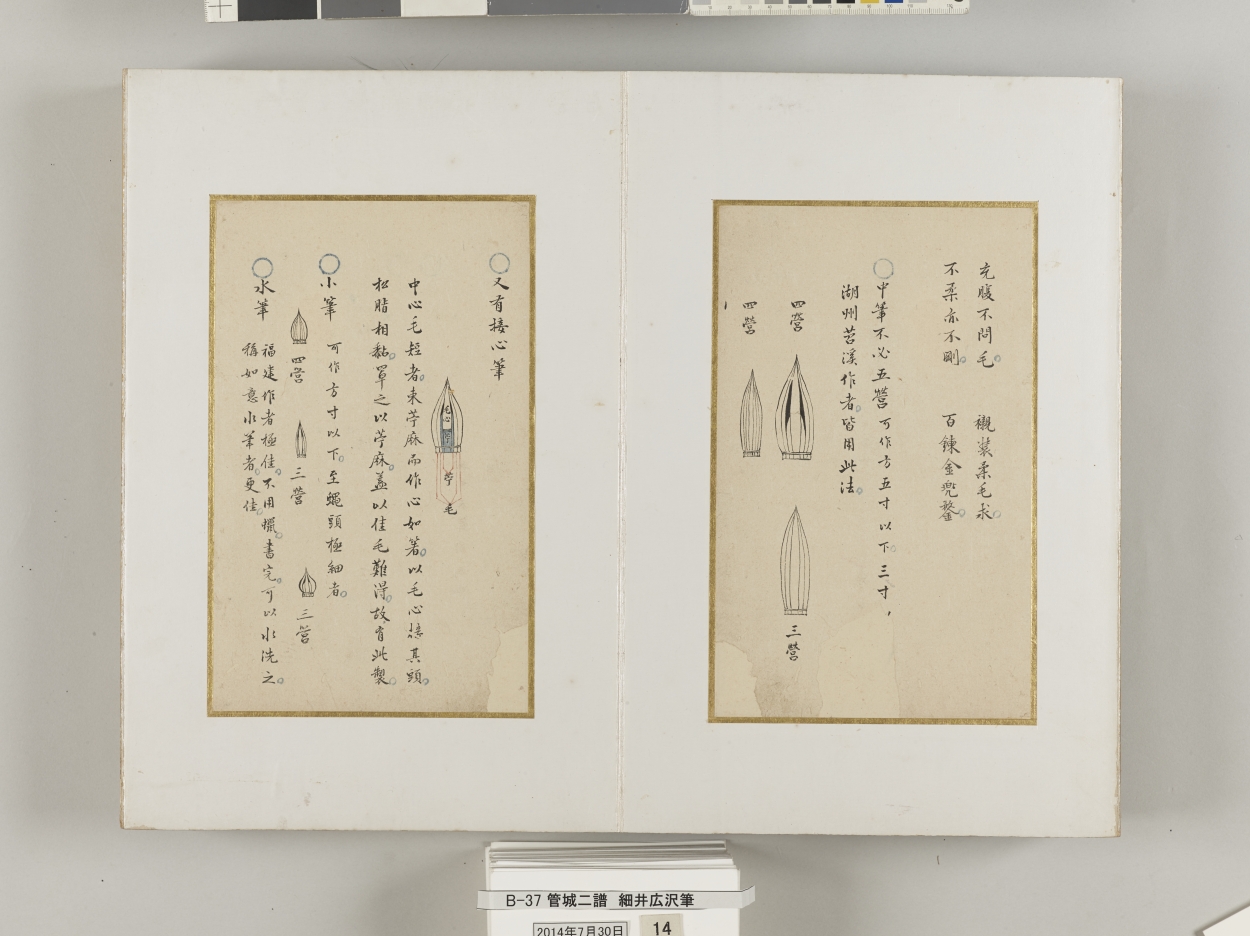 充腹不問毛 襯裝柔毛求
不柔亦不剛 百鍊金兜鍪
中筆不必五營 可作方五寸以下三寸
湖州苕溪作者皆用此法
四營
三營
四營
又有接心筆
毛心
苧
毛
中心毛短者束苧麻而作心如箸以毛心接其頭
松脂相黏單之以苧麻蓋以佳毛難得故有此製
小筆 可作方寸以下至蠅頭極細者
四營
三營
三營
水筆 福建作者極佳不用攦書完可以水洗之
稱如意水筆者更佳
B-37 管城二譜 細井広沢筆
2014年7月30日
14